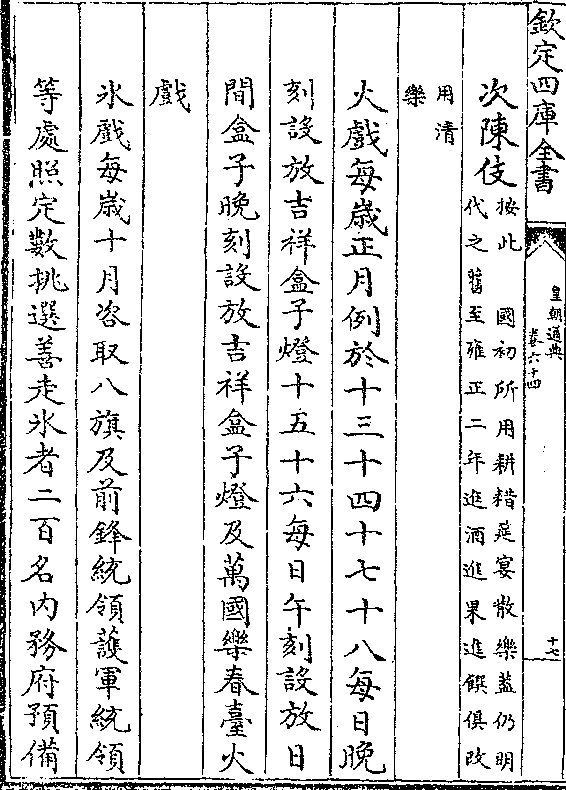 欽定四庫全書
皇朝通典
卷六十四
十七
次陳伎
按此 國初所用耕耤筵宴散樂蓋仍明
代之舊至雍正二年進酒進果進饌俱改
用清
樂
火戲每歲正月例於十三十四十七十八每日晚
刻設放吉祥盒子燈十五十六每日午刻設放日
間盒子晚刻設放吉祥盒子燈及萬國樂春臺火
戲
氷戲每歲十月咨取八旗及前鋒統領護軍統領
等處照定數挑選善走氷者二百名內務府預備